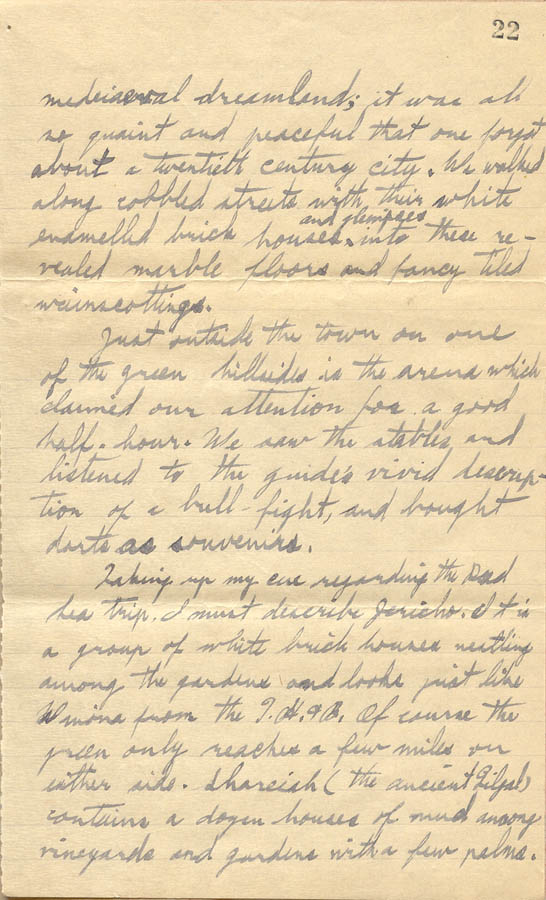 22
mediaeval dreamland; it was all
so quaint and peaceful that one forgot
about a twentieth century city. We walked
along cobbled streets with their white
and glimpses
enamelled brick houses, into these re-
vealed marble floors and fancy tiled
wainscottings.
Just outside the town on one
of the green hillsides is the arena which
claimed our attention for a good
half-hour. We saw the stables and
listened to the guide's vivid descrip-
tion of a bull-fight, and bought
darts as souvenirs.
Taking up my cue regarding the Dead
Sea trip, I must describe Jericho. It is
a group of white brick houses nestling
among the gardens and looks just like
Winona from the T.H.&B. Of course the
green only reaches a few miles on
either side. Shareiah (the ancient Gilgal)
contains a dozen houses of mud among
vineyards and gardens with a few palms.